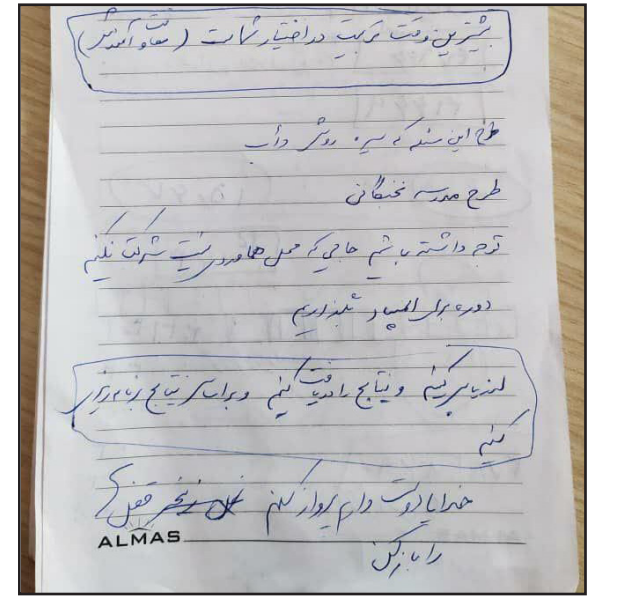 بیشترین وقت تربیت در اختیار شماست (معاونت آموزش)
طرح این سند که سیره روش دأب
طرح مدرسه نخبگانی
توجه داشته باشیم جایی که محل هماوردی نیست شرکت نکنیم
دوره برای المپیاد بگذاریم
ارزیابی کنیم و نتایج را دریافت کنیم و براساس نتایج برنامه‌ریزی
کنیم
خدایا دوست دارم پرواز کنم قفل
را باز کن
ALMAS